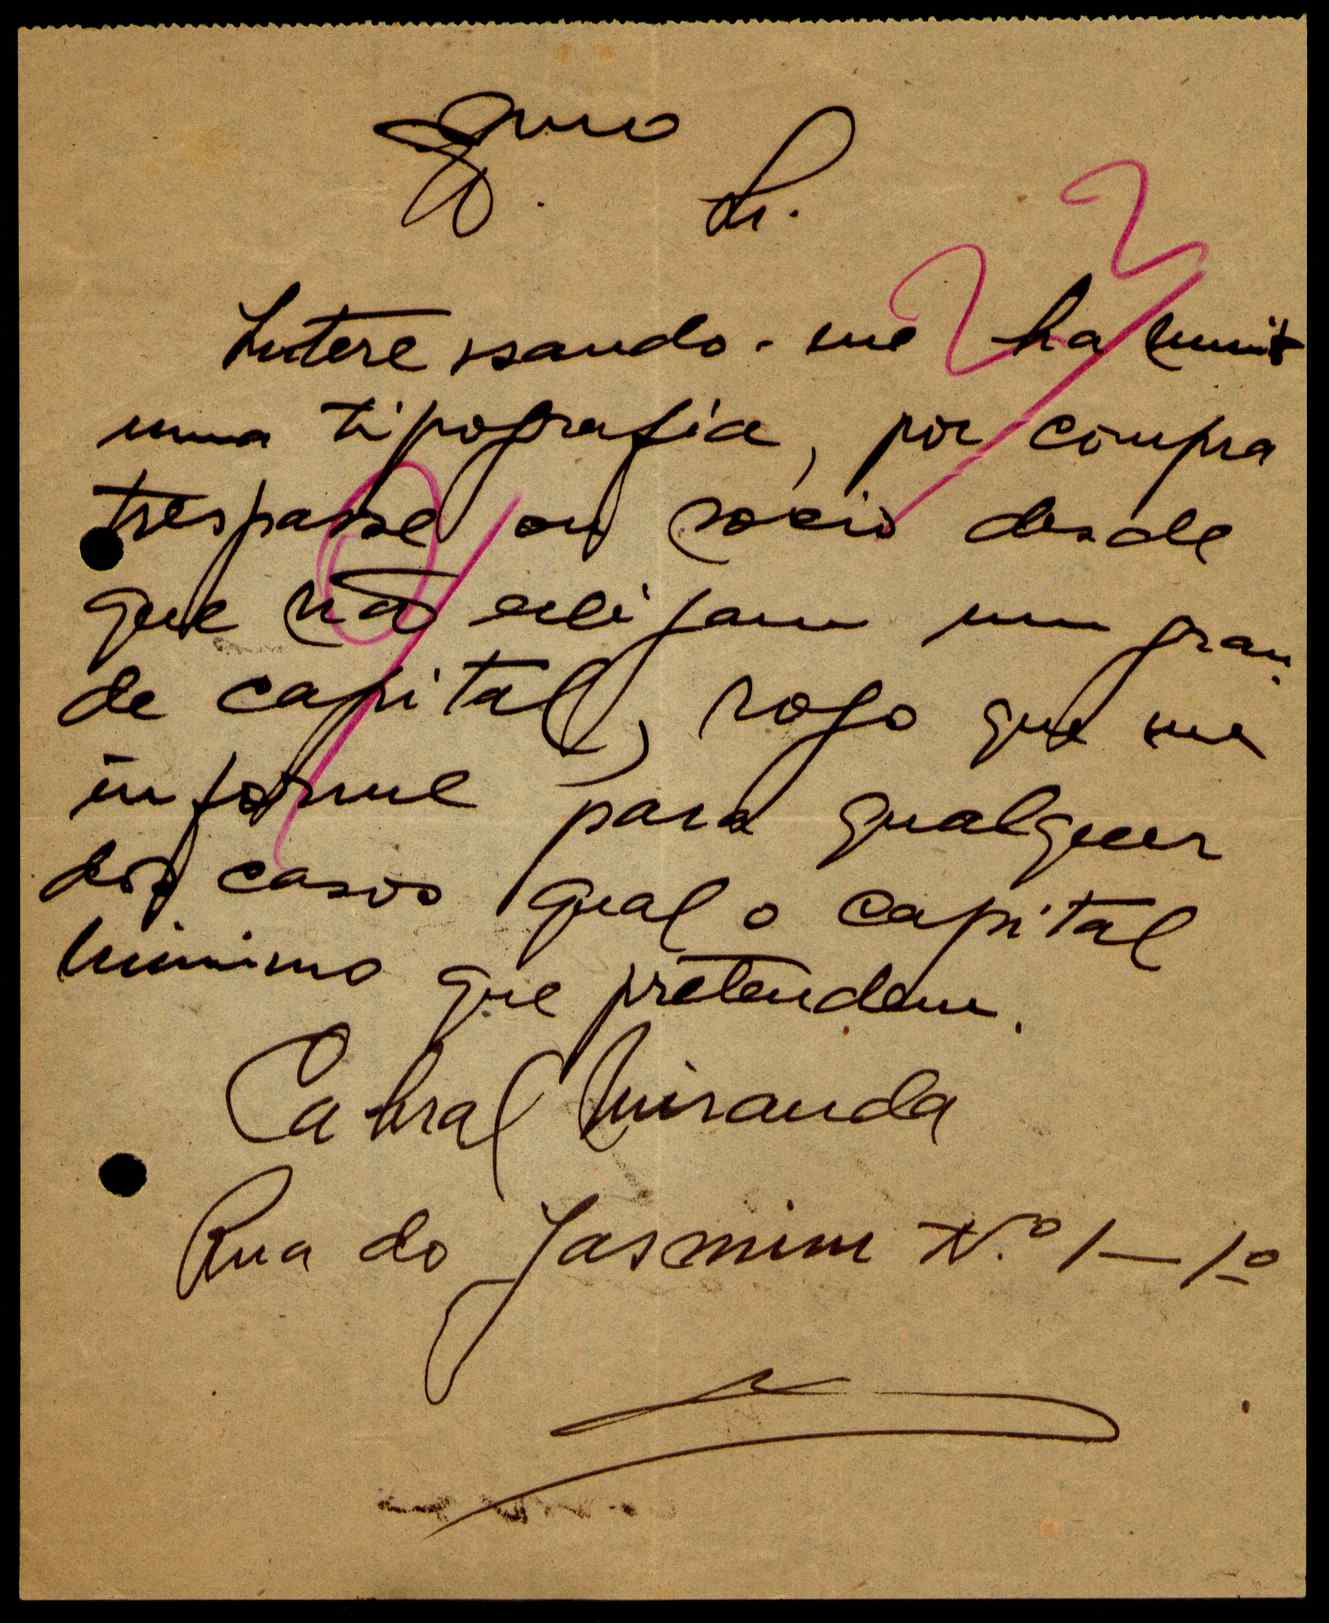 Exmo
Sr.
Interessando-me ha muito
uma tipografia, por compra
trespasse ou socio desde
que não exijam um gran-
de capital, rogo que me
informe para qualquer
dos casos qual o capital
minimo que pretendem.
Cabral Miranda
Rua do Jasmim N.º 1-1º